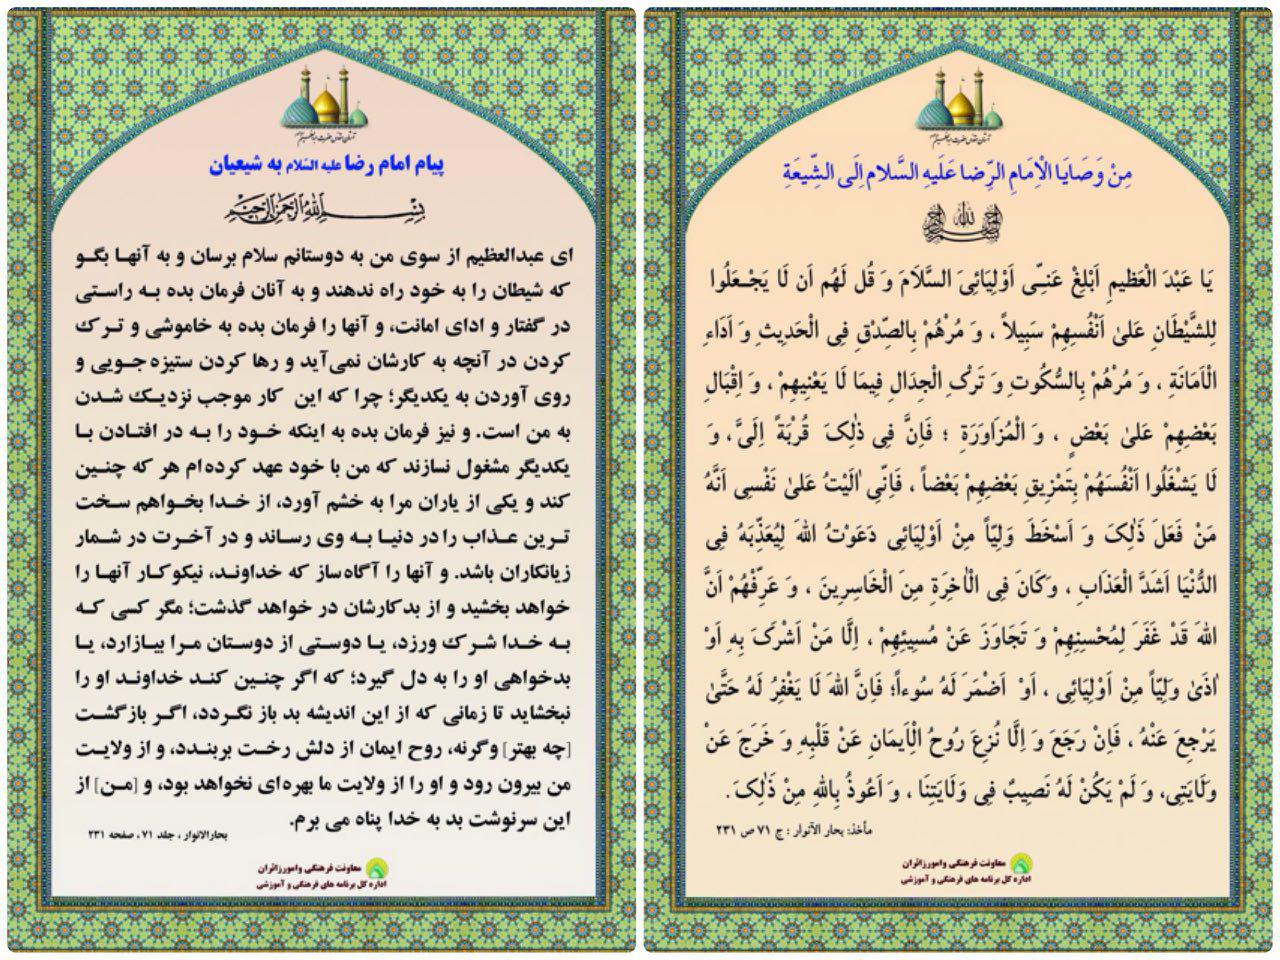 مِنْ وَصَايَا الْاِمَامِ الرِّضا عَلَيهِ السَّلام اِلَى الشِّيعَةِ
يَا عَبْدَ الْعَظيمِ اَبْلِغْ عَنِّـى اَوْلِيَائِىَ السَّلَامَ وَ قُل لَهُم اَن لَا يَجْـعَلُوا
لِلشَّيْطَانِ عَلىٰ اَنْفُسِهِمْ سَبِيلاً ، وَ مُرْهُمْ بِالصِّدْقِ فِى الْحَدِيثِ وَ اَدَاءِ
الْاَمَانَةِ ، وَ مُرْهُمْ بِالسُّكُوتِ وَ تَرْكِ الْجِدَالِ فِيمَا لَا يَعْنِيهِمْ ، وَ اِقْبَالِ
بَعْضِهِمْ عَلىٰ بَعْضٍ ، وَ الْمُزَاوَرَةِ ؛ فَاِنَّ فِى ذٰلِكَ قُرْبَةً اِلَىَّ، وَ
لَا يَشْغَلُوا اَنْفُسَهُمْ بِتَمْزِيقِ بَعْضِهِمْ بَعْضاً ، فَاِنِّى اٰلَيْتُ عَلىٰ نَفْسِى اَنَّهُ
مَنْ فَعَلَ ذٰلِكَ وَ اَسْخَطَ وَلِيّاً مِنْ اَوْلِيَائِى دَعَوْتُ اللهَ لِيُعَذِّبَهُ فِى
الدُّنْيَا اَشَدَّ الْعَذَابِ ، وَكَانَ فِى الْاٰخِرَةِ مِنَ الْخَاسِرِينَ ، وَ عَرِّفْهُمْ اَنَّ
اللهَ قَدْ غَفَرَ لِمُحْسِنِهِمْ وَ تَجَاوَزَ عَنْ مُسِيئِهِمْ ، اِلَّا مَنْ اَشْرَكَ بِهِ اَوْ
اٰذىٰ وَلِيّاً مِنْ اَوْلِيَائِى ، اَوْ اَضْمَرَ لَهُ سُوءاً؛ فَاِنَّ اللهَ لَا يَغْفِرُ لَهُ حَتّىٰ
يَرْجِعَ عَنْهُ ، فَاِنْ رَجَعَ وَ اِلَّا نُزِعَ رُوحُ الْاِيمَانِ عَنْ قَلْبِهِ وَ خَرَجَ عَنْ
وِلَايَتِى، وَ لَمْ يَكُنْ لَهُ نَصِيبٌ فِى وِلَايَتِنَا ، وَ اَعُوذُ بِاللهِ مِنْ ذٰلِكَ .
مأخذ: بحار الآنوار : ج ۷۱ ص ۲۳۱
معاونت فرهنگی وامورزائران
اداره کل برنامه های فرهنگی و آموزشی
پیام امام رضا علیه السّلام به شیعیان
بِسْمِ اللهِ الرَّحْمٰنِ الرَّحِيمِ
ای عبدالعظیم از سوی من به دوستانم سلام برسان و به آنهـا بگـو
که شیطان را به خود راه ندهند و به آنان فرمان بده بـه راستی
در گفتار و ادای امانت، و آنها را فرمان بده به خاموشی و تـرک
کردن در آنچه به کارشان نمی‌آید و رها کردن ستیزه جـویی و
روی آوردن به یکدیگر؛ چرا که این کار موجب نزدیـک شـدن
به من است. و نیز فرمان بده به اینکه خـود را بـه در افتـادن بـا
یکدیگر مشغول نسازند که من با خود عهد کرده‌ام هر که چنـین
کند و یکی از یاران مرا به خشم آورد، از خدا بخـواهم سـخت
تـرین عـذاب را در دنیـا بـه وی رسـاند و در آخـرت در شـمار
زیانکاران باشد. و آنها را آگاه‌ساز که خداوند، نیکوکـار آنهـا را
خواهد بخشید و از بدکارشان در خواهد گذشت؛ مگر کسی کـه
بـه خـدا شـرک ورزد، یـا دوستی از دوستان مـرا بیـازارد، یـا
بدخواهی او را به دل گیرد؛ که اگر چنـین کنـد خداونـد او را
نبخشاید تا زمانی که از این اندیشه بد باز نگـردد، اگـر بازگشت
[چه بهتر] وگرنه، روح ایمان از دلش رخـت بربنـدد، و از ولایـت
من بیرون رود و او را از ولایت ما بهره‌ای نخواهد بود، و [مـن] از
این سرنوشت بد به خدا پناه می برم.
بحارالانوار ، جلد ۷۱ ، صفحه ۲۳۱
معاونت فرهنگی وامورزائران
اداره کل برنامه های فرهنگی و آموزشی